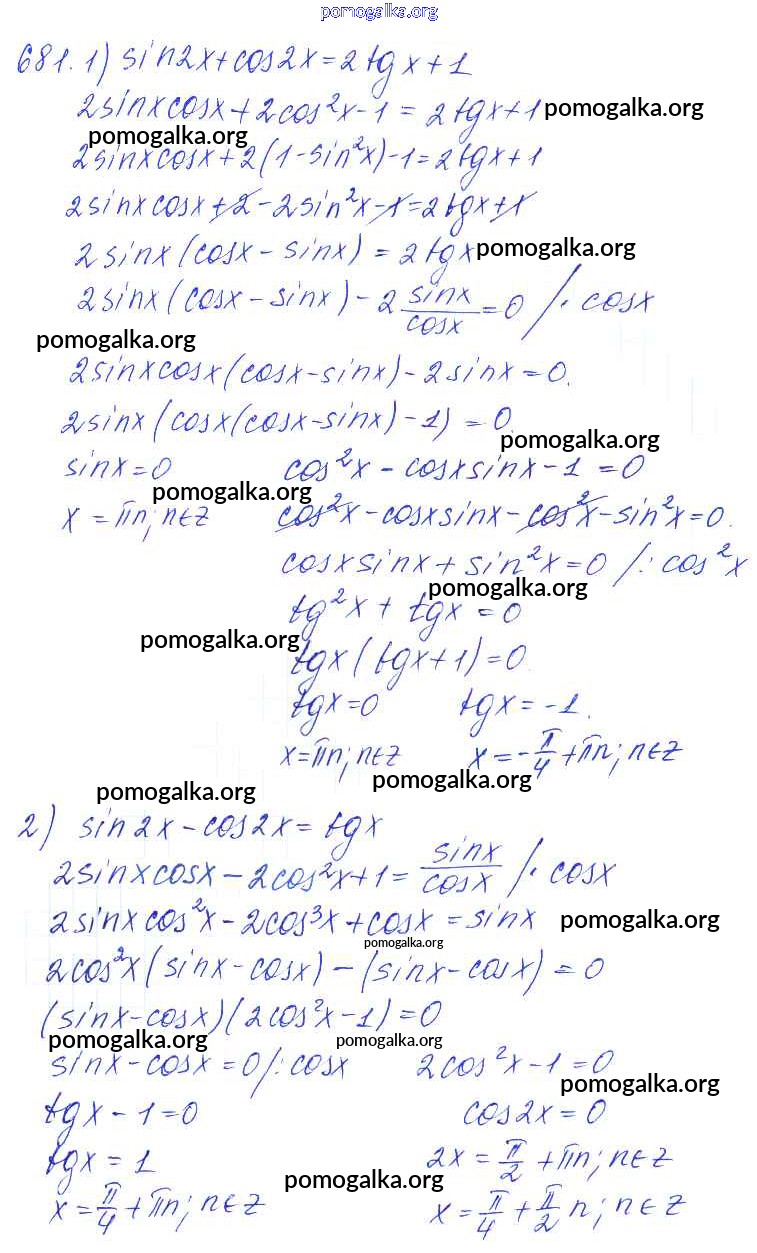 pomogalka.org
681. 1) sin2x+cos2x=2tgx+1
2sinxcosx+2cos²x-1=2tgx+1 pomogalka.org
pomogalka.org
2sinxcosx+2(1-sin²x)-1=2tgx+1
2sinxcosx+2-2sin²x-1=2tgx+1
2sinx(cosx-sinx)=2tgx pomogalka.org
2sinx(cosx-sinx)-2 sinx/cosx=0 /·cosx
pomogalka.org
2sinxcosx(cosx-sinx)-2sinx=0.
2sinx(cosx(cosx-sinx)-1)=0
pomogalka.org
sinx=0 cos²x-cosxsinx-1=0
pomogalka.org
x=πn; n∈Z cos²x-cosxsinx-cos²x-sin²x=0.
cosxsinx+sin²x=0 /:cos²x
pomogalka.org
tg²x+tgx=0
pomogalka.org
tgx(tgx+1)=0
tgx=0 tgx=-1.
x=πn; n∈Z x=-π/4+πn; n∈Z
pomogalka.org
pomogalka.org
2) sin2x-cos2x=tgx
2sinxcosx-2cos²x+1= sinx/cosx /·cosx
2sinxcos²x-2cos³x+cosx=sinx pomogalka.org
pomogalka.org
2cos²x(sinx-cosx)-(sinx-cosx)=0
(sinx-cosx)(2cos²x-1)=0
pomogalka.org pomogalka.org
sinx-cosx=0/:cosx 2cos²x-1=0
pomogalka.org
tgx-1=0 cos2x=0
tgx=1 2x=π/2+πn; n∈Z
pomogalka.org
x=π/4+πn; n∈Z x=π/4+π/2 n; n∈Z